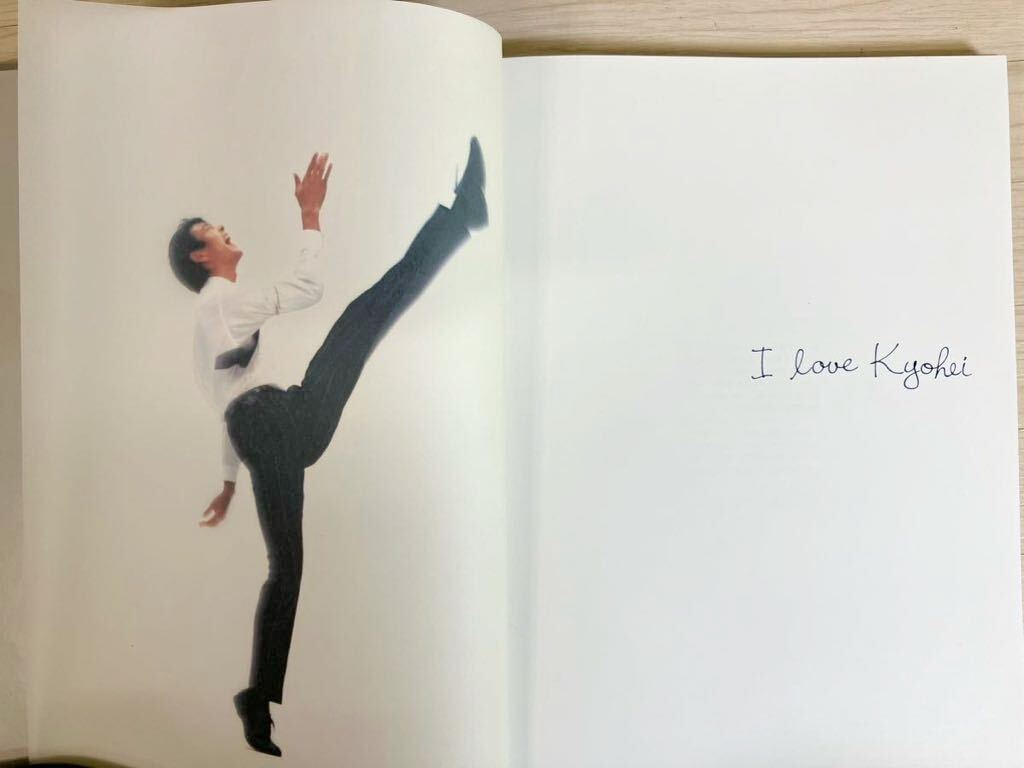 I love Kyohei